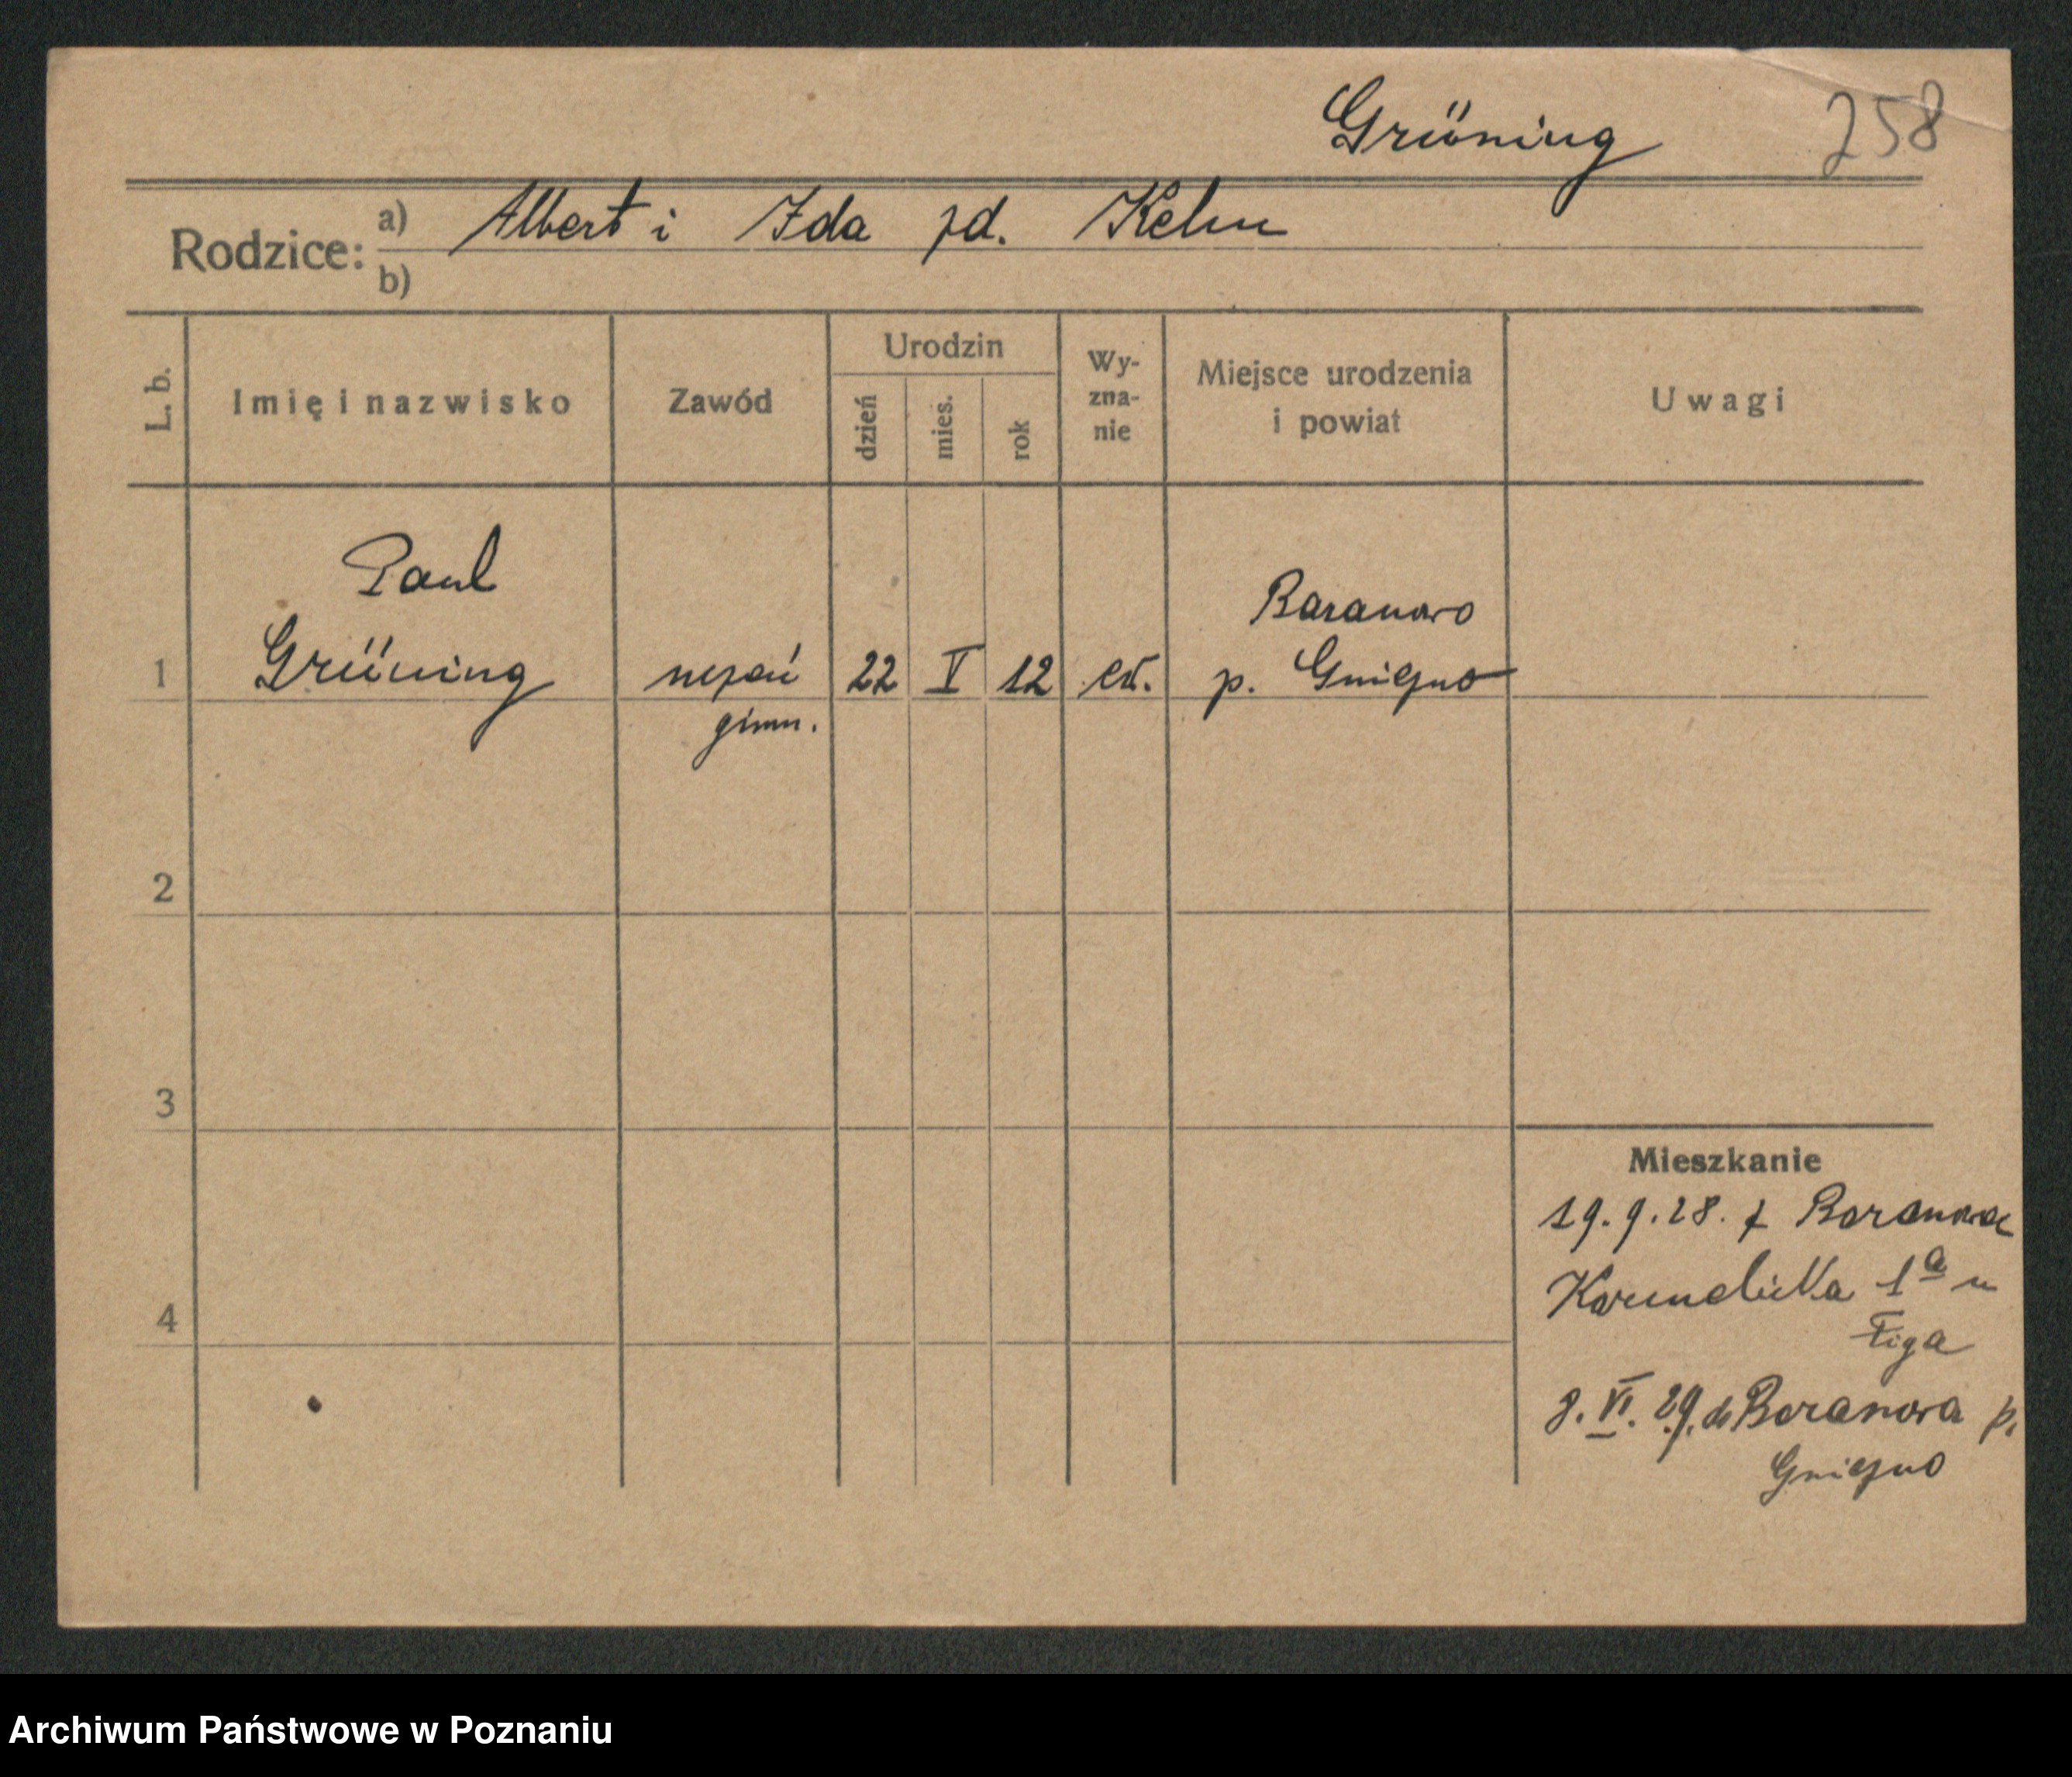 Grüning 258
Rodzice: a) Albert i Ida zd. Kelm
b)
L. b. Imię i nazwisko Zawód Urodzin dzień mies. rok Wyznanie Miejsce urodzenia i powiat Uwagi
Paul
Baranowo
1 Grüning uczeń 22 V 12 ew. p. Gniezno
gimn.
2
3
Mieszkanie
19.9.28. z Baranowa
4 Karmelicka 1a u
8.VI.29. do Baranowa p.
Gniezno
Archiwum Państwowe w Poznaniu